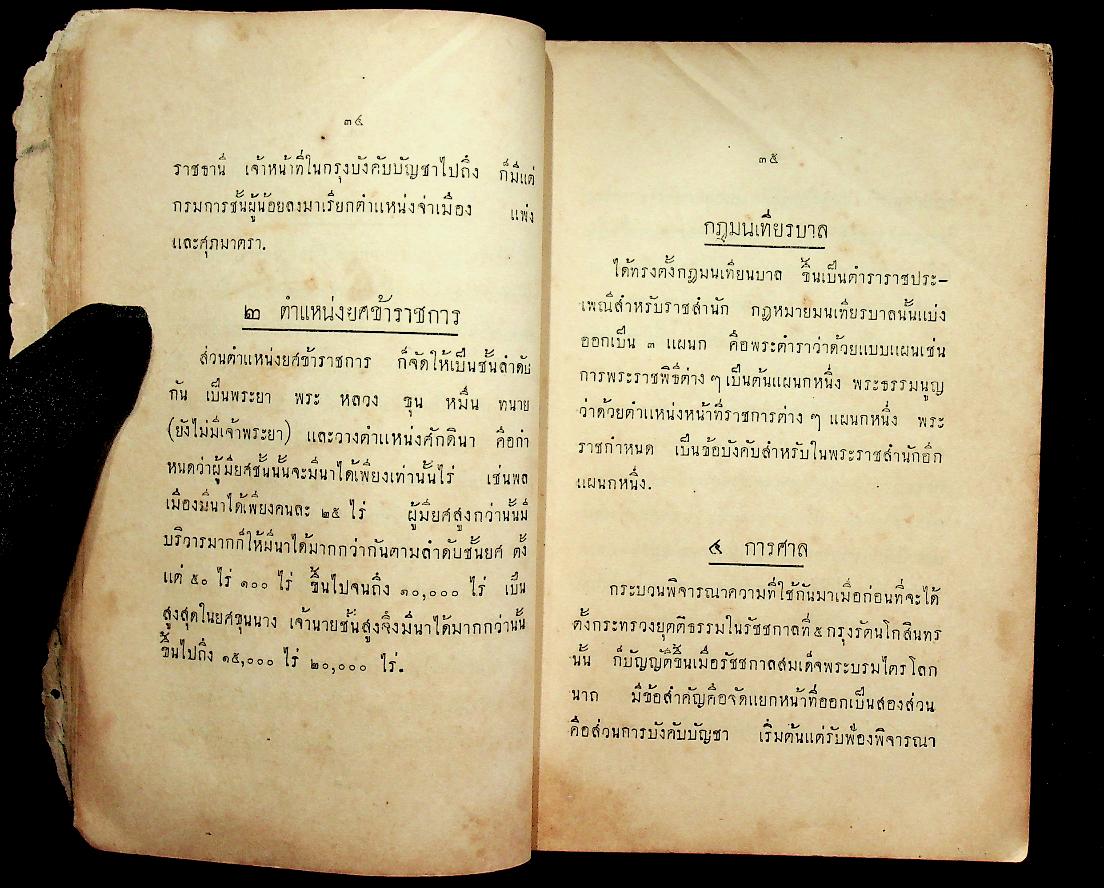 ๓๔
ราชธานี เจ้าหน้าที่ในกรุงบังคับบัญชาไปถึง ก็มีแต่
กรมการชั้นผู้น้อยลงมาเรียกตำแหน่งจ่าเมือง แพ่ง
และศุภมาตรา.
๒ ตำแหน่งยศข้าราชการ
ส่วนตำแหน่งยศข้าราชการ ก็จัดให้เป็นชั้นลำดับ
กัน เป็นพระยา พระ หลวง ขุน หมื่น ทนาย
(ยังไม่มีเจ้าพระยา) และวางตำแหน่งศักดินา คือกำ
หนดว่าผู้มียศชั้นนั้นจะมีนาได้เพียงเท่านั้นไร่ เช่นพล
เมืองมีนาได้เพียงคนละ ๒๕ ไร่ ผู้มียศสูงกว่านั้นมี
บริวารมากก็ให้มีนาได้มากกว่ากันตามลำดับชั้นยศ ตั้ง
แต่ ๕๐ ไร่ ๑๐๐ ไร่ ขึ้นไปจนถึง ๑๐,๐๐๐ ไร่ เป็น
สูงสุดในยศขุนนาง เจ้านายชั้นสูงจึงมีนาได้มากกว่านั้น
ขึ้นไปถึง ๑๕,๐๐๐ ไร่ ๒๐,๐๐๐ ไร่.
๓๕
กฎมนเทียรบาล
ได้ทรงตั้งกฎมนเทียนบาล ขึ้นเป็นตำราราชประ–
เพณีสำหรับราชสำนัก กฎหมายมนเทียรบาลนั้นแบ่ง
ออกเป็น ๓ แผนก คือพระตำราว่าด้วยแบบแผนเช่น
การพระราชพิธีต่าง ๆ เป็นต้นแผนกหนึ่ง พระธรรมนูญ
ว่าด้วยตำแหน่งหน้าที่ราชการต่าง ๆ แผนกหนึ่ง พระ
ราชกำหนด เป็นข้อบังคับสำหรับในพระราชสำนักอีก
แผนกหนึ่ง.
๔ การศาล
กระบวนพิจารณาความที่ใช้กันมาเมื่อก่อนที่จะได้
ตั้งกระทรวงยุตติธรรมในรัชชกาลที่ ๕ กรุงรัตนโกสินทร
นั้น ก็บัญญัติขึ้นเมื่อรัชชกาลสมเด็จพระบรมไตรโลก
นาถ มีข้อสำคัญคือจัดแยกหน้าที่ออกเป็นสองส่วน
คือส่วนการบังคับบัญชา เริ่มต้นแต่รับฟ้องพิจารณา